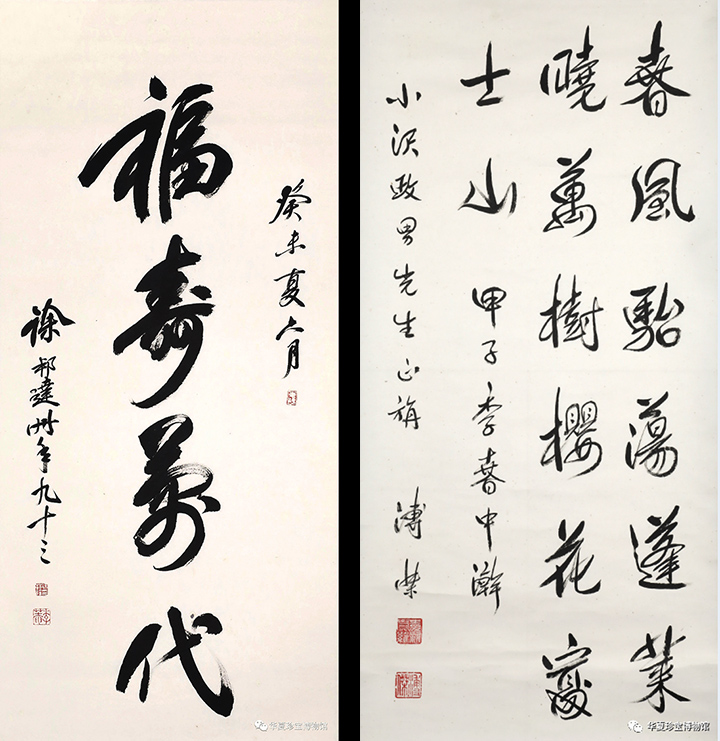 癸未夏六月
福壽萬代
徐邦達时年九十三
华夏珍宝博物馆
春風駘蕩蓬莱
曉萬樹櫻花富
士山 甲子季春中澣
小沢政男先生正 溥杰
华夏珍宝博物馆